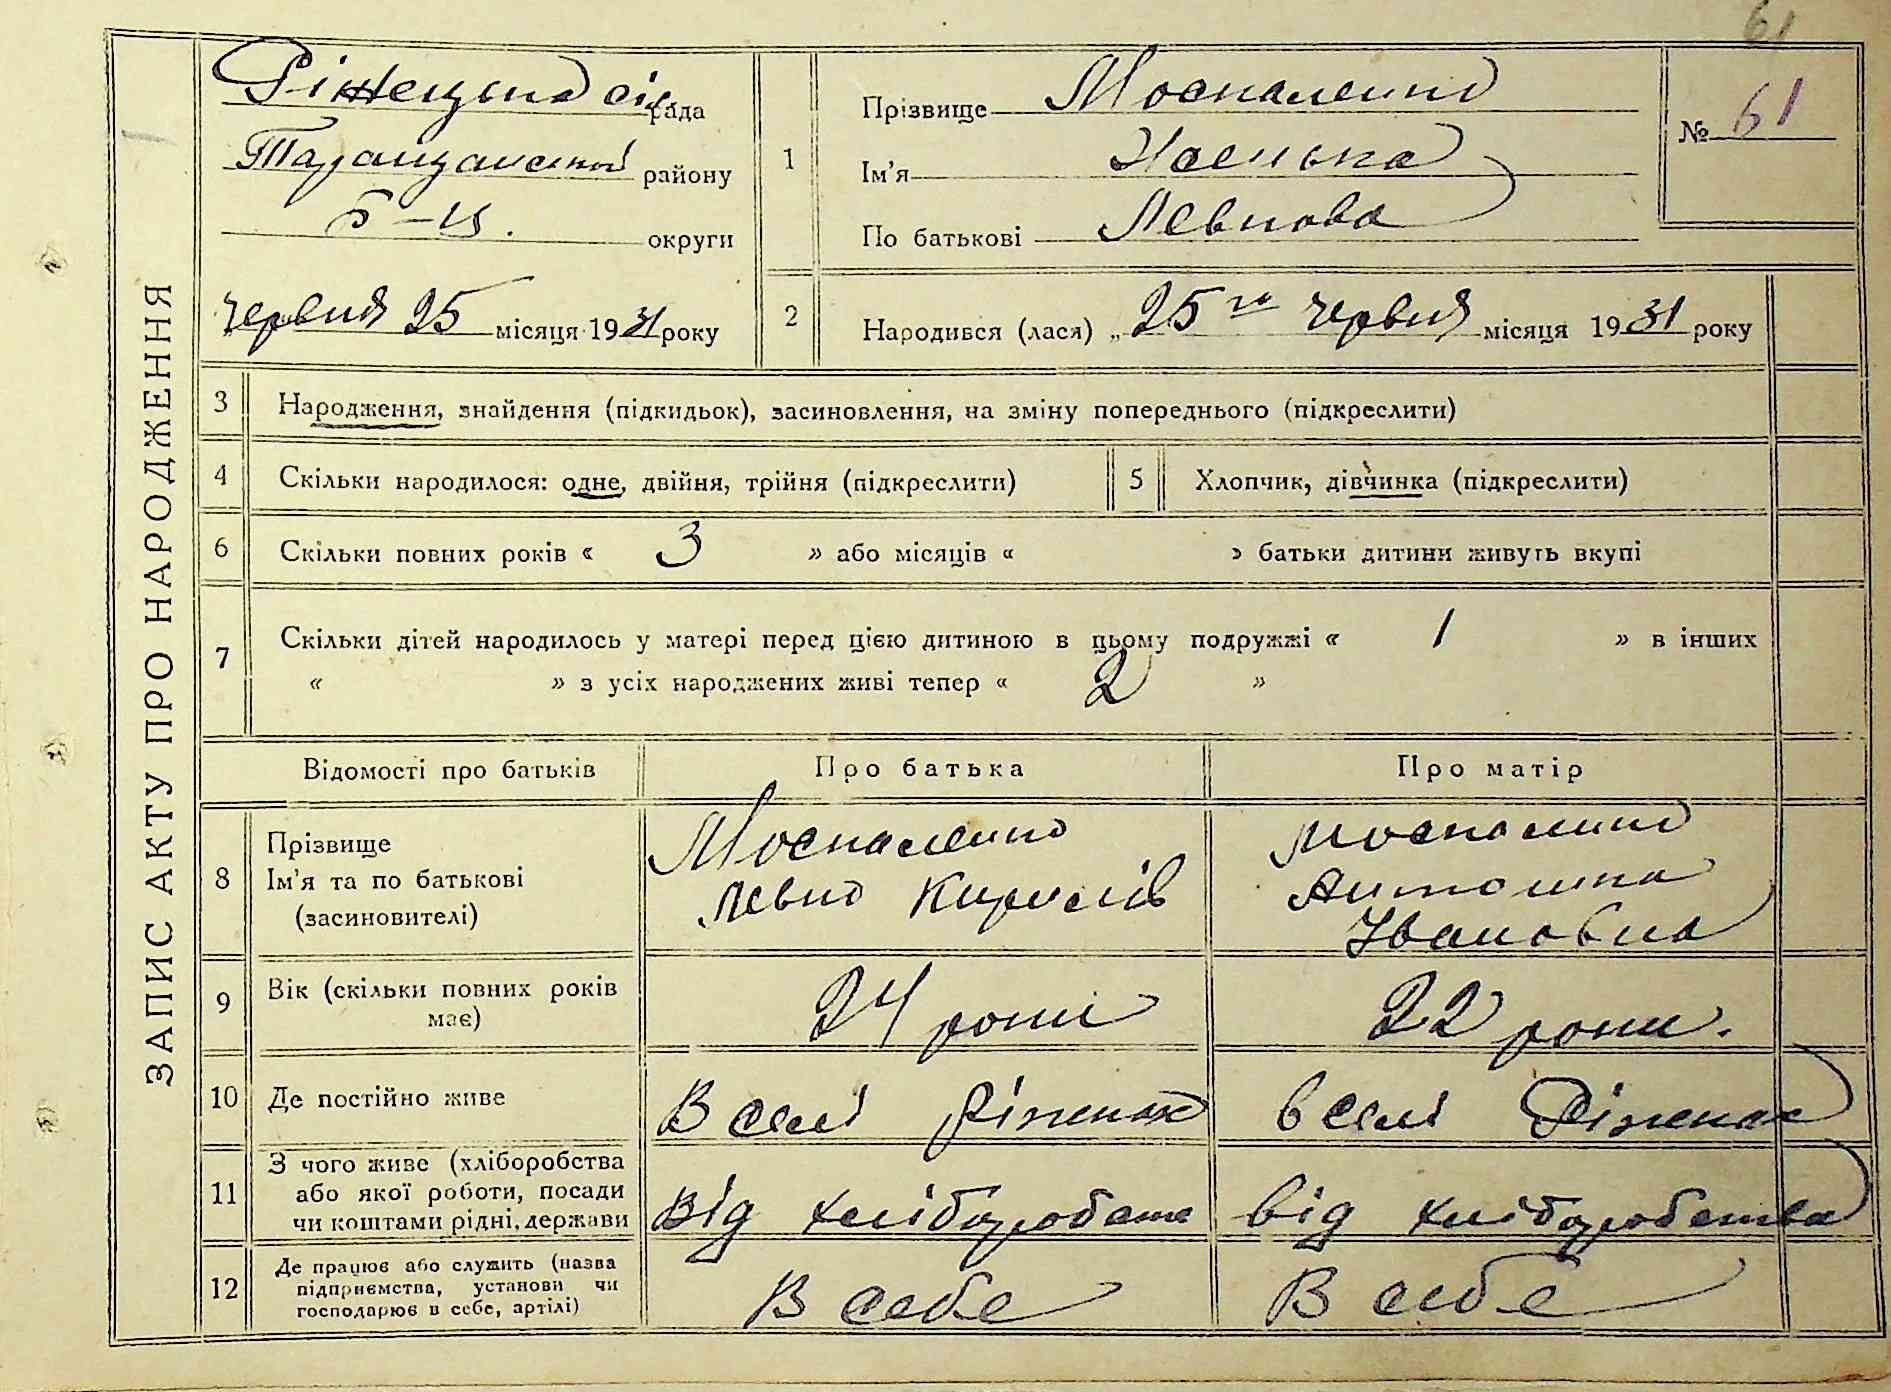 61
Ріжецька сіль рада
Таращанський району
Б-Ц. округи
Червня 25 місяця 1931 року
1
Прізвище Москаленко
Ім'я
По батькові Левкова
№ 61
2
Народився (лася) „25го червня місяця 1931 року
ЗАПИС АКТУ ПРО НАРОДЖЕННЯ
3 Народження, знайдення (підкидьок), засиновлення, на зміну попереднього (підкреслити)
4 Скільки народилося: одне, двійня, трійня (підкреслити)
5 Хлопчик, дівчинка (підкреслити)
6 Скільки повних років « 3 » або місяців « » батьки дитини живуть вкупі
7 Скільки дітей народилось у матері перед цією дитиною в цьому подружжі « 1 » в інших
« » з усіх народжених живі тепер « 2 »
Відомості про батьків Про батька Про матір
8
Прізвище
Ім'я та по батькові
(засиновителі)
Москаленко
Левко Кирилів
Москаленко
Антонина
Івановна
9
Вік (скільки повних років
має)
24 роки
22 роки.
10 Де постійно живе
В селі Ріжках
в селі Ріжках
11
З чого живе (хліборобства
або якої роботи, посади
чи коштами рідні, держави
Від хліборобства
від хліборобства
12
Де працює або служить (назва
підприємства, установи чи
господарює в себе, артілі)
В себе
В себе